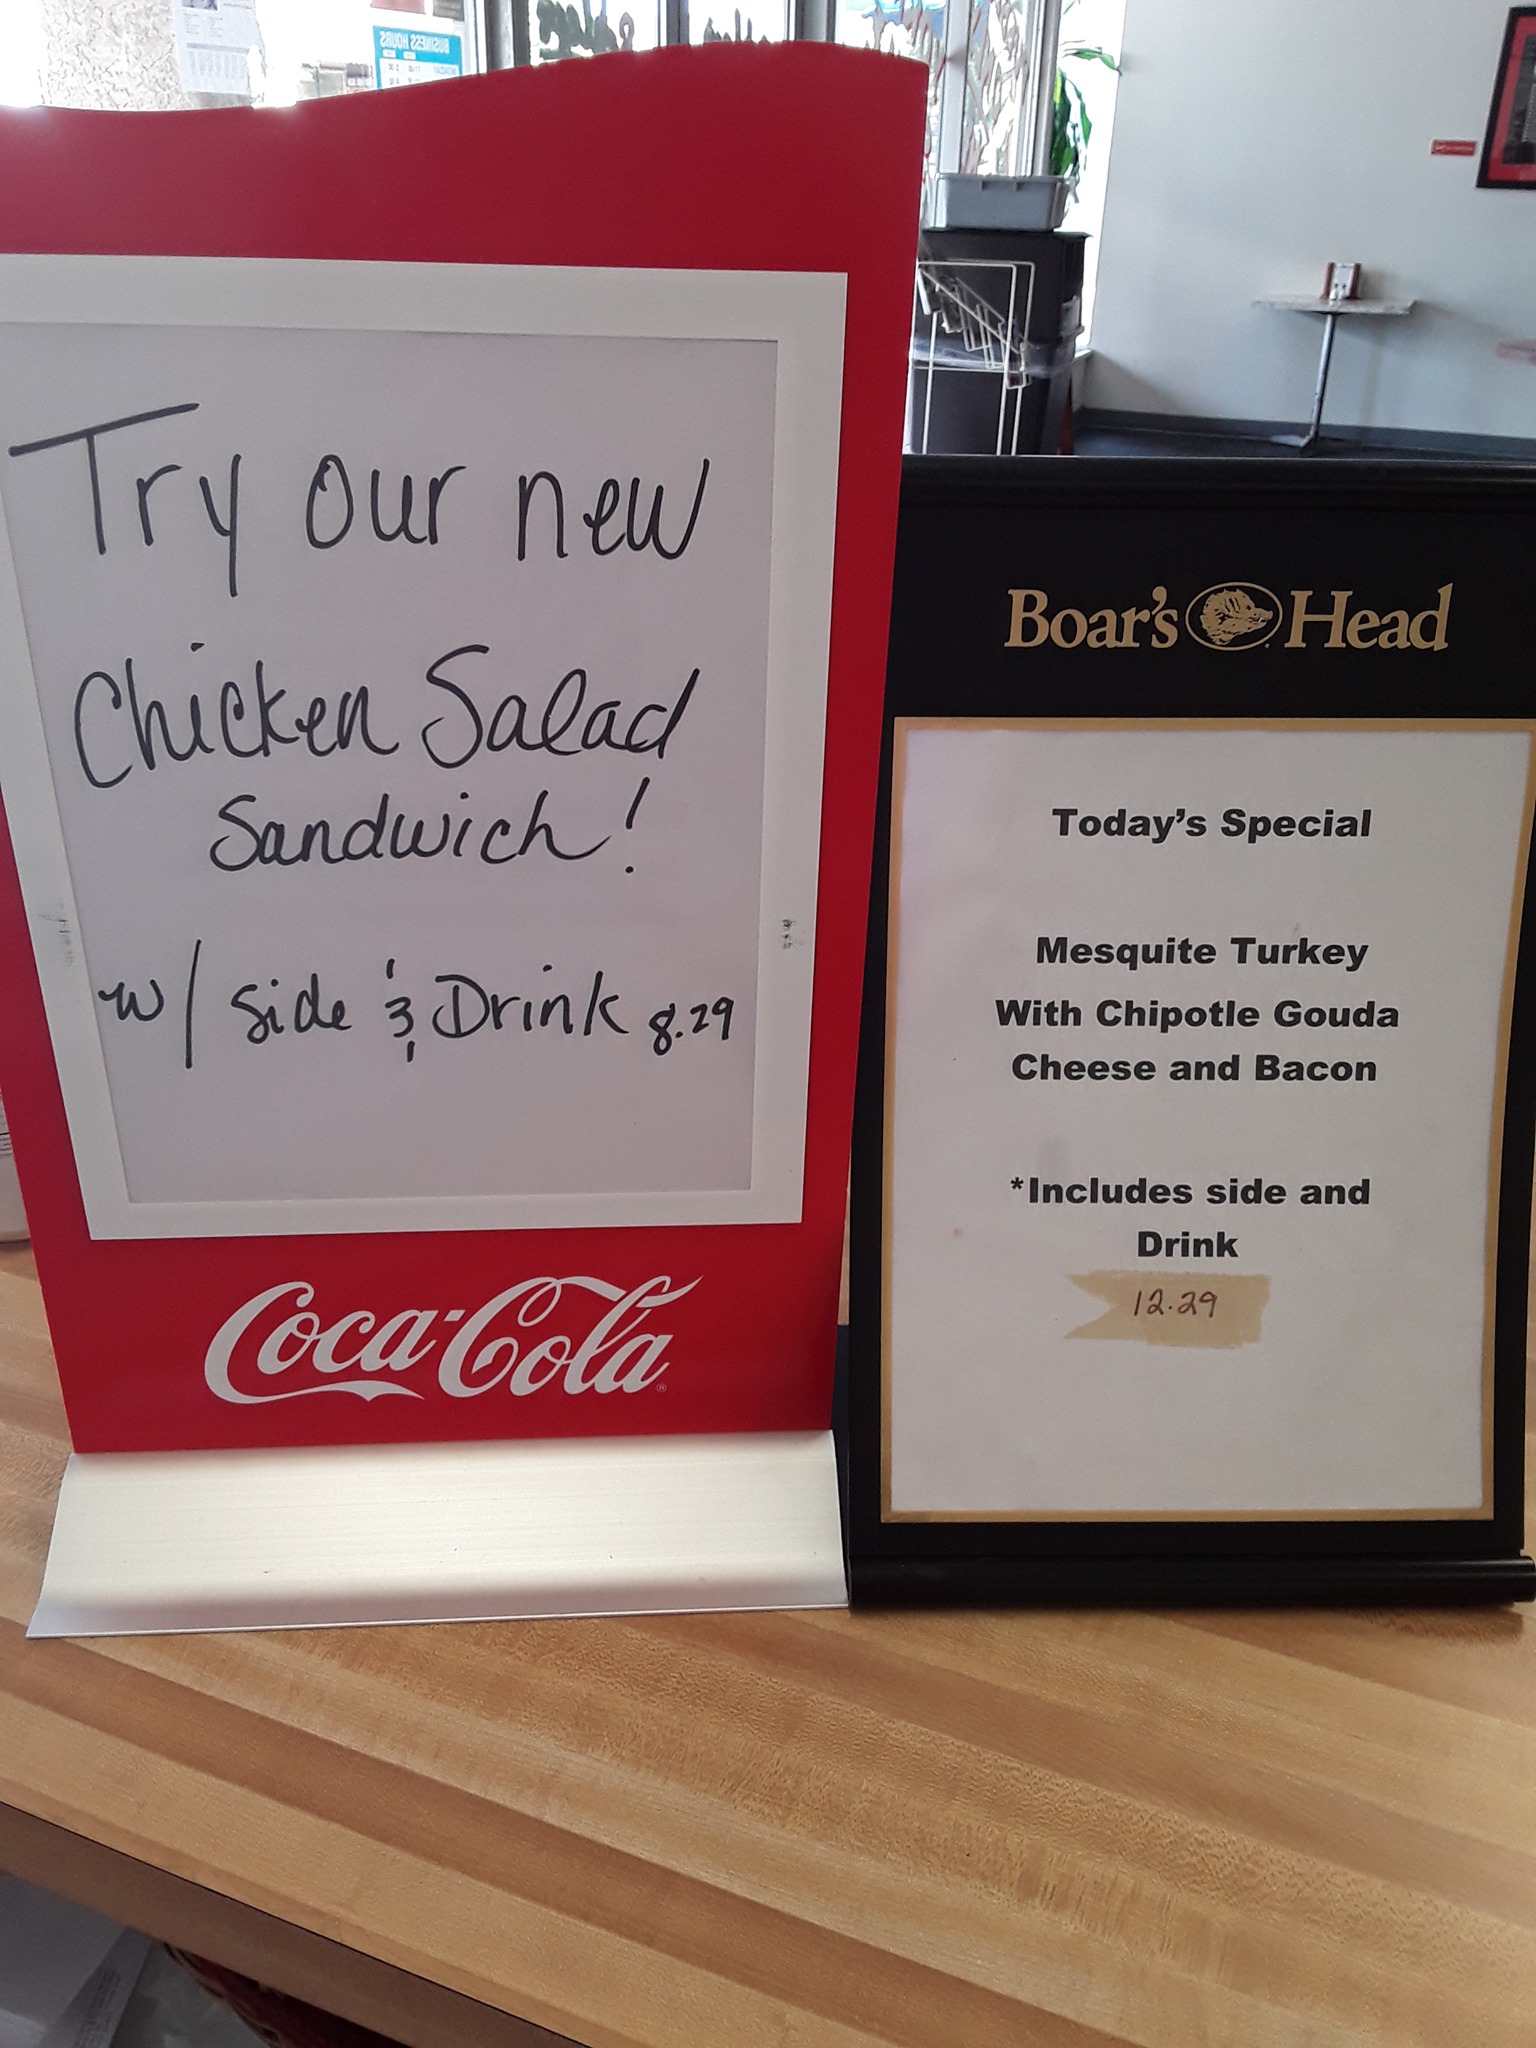 BUSINESS HOURS
Try our new
Chicken Salad
Sandwich!
w/ side & Drink 8.29
Coca-Cola
Boar's Head
Today's Special
Mesquite Turkey
With Chipotle Gouda
Cheese and Bacon
*Includes side and
Drink
12.29